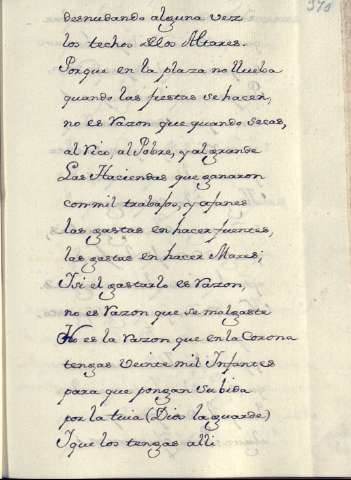 373
desnudando alguna vez
los techos dlos Altares.
Porque en la plaza no llueba
quando las fiestas se hacen,
no es Razon que quando secas,
al Rico, al Pobre, y al grande
Las Haciendas que ganaron
con mil trabajos, y afanes
las gastas en hacer fuentes,
las gastas en hacer Mares;
I si el gastarlo es Razon,
no es Razon que se malgaste
No es la Razon que en la Corona
tengas veinte mil Infantes
para que pongan su bida
por la tuia (Dios la guarde)
I que los tengas alli